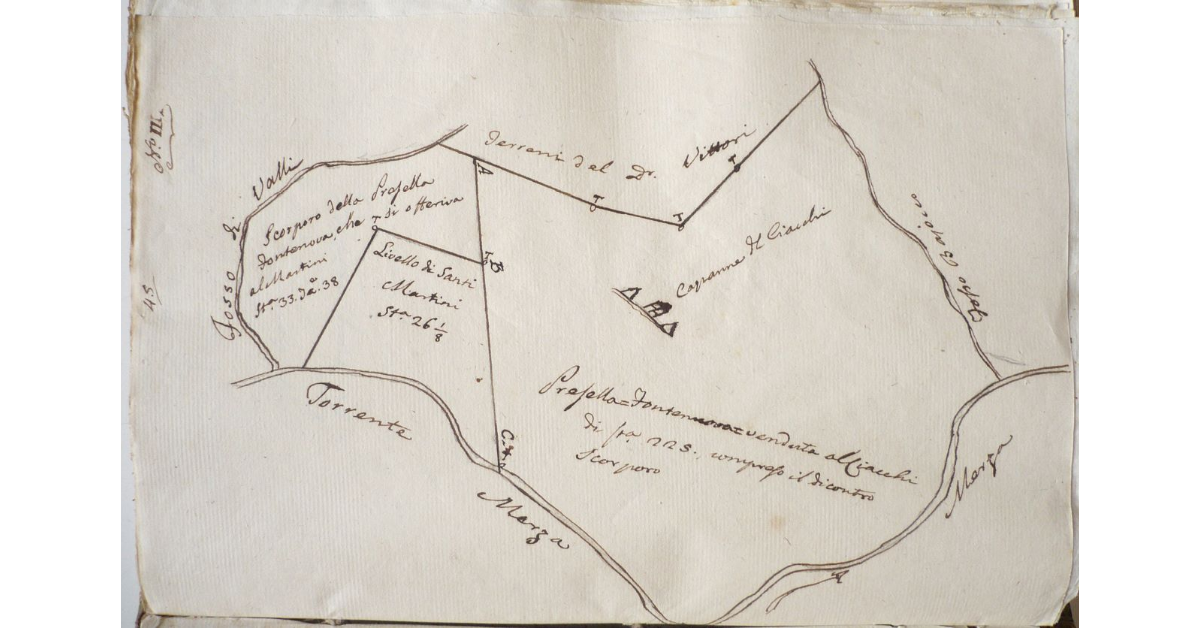 N.º III.
45
Fosso di Valli
Terreni del Dr. Vittori
Scorporo della Presella
Fontenova, che si offeriva
al Martini
St.a 33. 38
Livello di Santi
Martini
St.a 26 1/8
A
T
T
T
T
T
B
Capanne del Ciacchi
Fosso
Presella=Fontenova=venduta al Ciacchi
di sta 225., compreso il dicontro
Scorporo
C.
Torrente
Merza
Merza